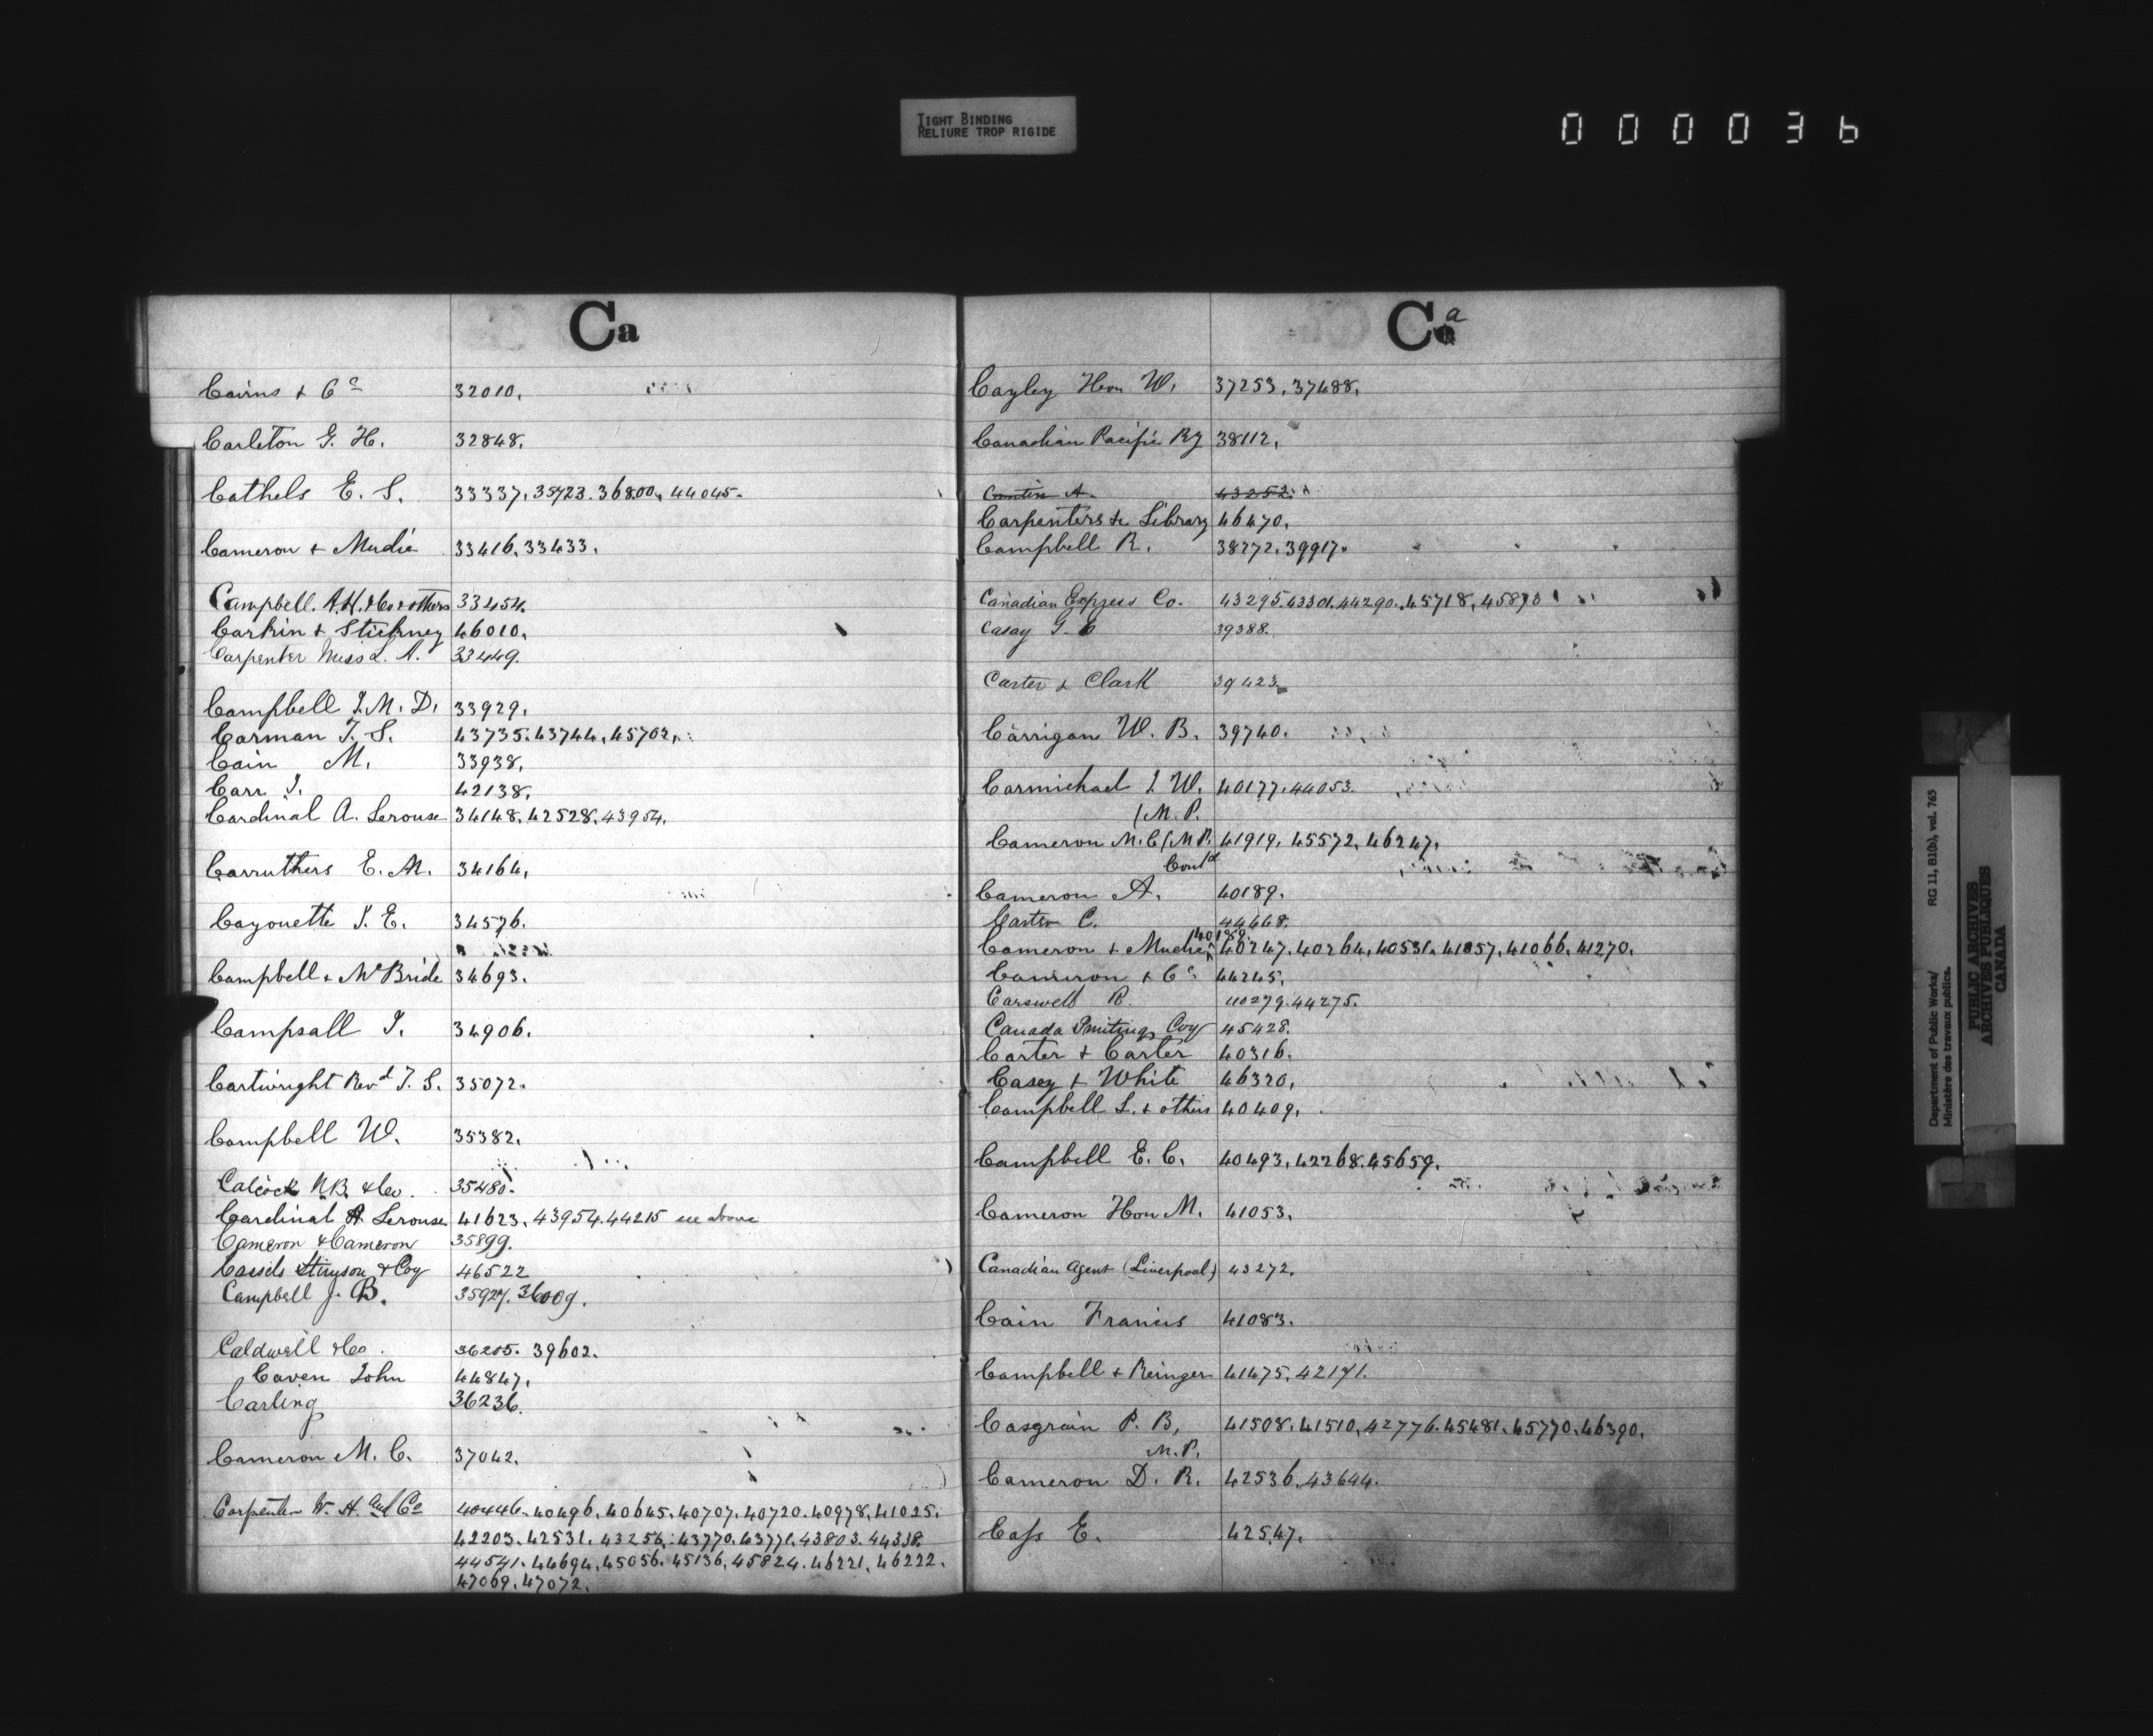 TIGHT BINDING
RELIURE TROP RIGIDE
000036
Ca
Cairns & Co 32010.
Carleton G. H. 32848.
Cathels E. S. 33337. 35723. 36800. 44045.
Cameron & Mudie 33416. 33433.
Campbell. A.H. & Co & others 33454.
Carkin & Stickney 46010.
Carpenter Miss L. A. 33449.
Campbell J. M. D. 33929.
Carman T. S. 43735. 43744. 45702.
Cain M. 33938.
Carr J. 42138.
Cardinal A. Lerouse 34148. 42528. 43954.
Carruthers E. M. 34164.
Cayouette J. E. 34576.
Campbell & McBride 34693.
Campsall J. 34906.
Cartwright Revd T. S. 35072.
Campbell W. 35382.
Calcock N.B. & Co. 35480.
Cardinal A Lerouse 41623. 43954. 44215 see above
Cameron & Cameron 35899.
Cassels Stimson & Coy 46522
Campbell J. B. 35927. 36009.
Caldwell & Co. 36205. 39602.
Caven John 44847.
Carling 36236.
Cameron M. C. 37042.
Carpenter W. H. and Co 40446. 40496. 40645. 40707. 40720. 40978. 41025.
42203. 42531. 43256. 43770. 43771. 43803. 44338.
44541. 44694. 45056. 45136. 45824. 46221. 46222.
47069. 47072.
Ca
Cayley Hon W. 37253. 37488.
Canadian Pacific Ry 38112.
Cantin A. 43252.
Carpenters &c Library 46470.
Campbell R. 38272. 39917.
Canadian Express Co. 43295. 43301. 44290. 45718. 45870
Casay G. E 39388.
Carter & Clark 39423.
Carrigan W. B. 39740.
Carmichael J. W. 40177. 44053.
(M. P.
Cameron M. C (M P. 41919. 45572. 46247.
Contd
Cameron A. 40189.
Carter C. 44468.
40189.
Cameron & Mudie 40247. 40264. 40531. 41057. 41066. 41270.
Cameron & Co 44245.
Carswell R. 40279. 44275.
Canada Printing Coy 45428.
Carter & Carter 40316.
Casey & White 46320.
Campbell L. & others 40409.
Campbell E. C. 40493. 42268. 45659.
Cameron Hon M. 41053.
Canadian Agent (Liverpool) 43272.
Cain Francis 41083.
Campbell & Reinger 41475. 42171.
Casgrain P. B. 41508. 41510. 42776. 45481. 45770. 46390.
M. P.
Cameron D. R. 42536. 43644.
Cass E. 42547.
Department of Public Works/
Ministère des travaux publics.
RG 11, B1(b), vol. 765
PUBLIC ARCHIVES
ARCHIVES PUBLIQUES
CANADA